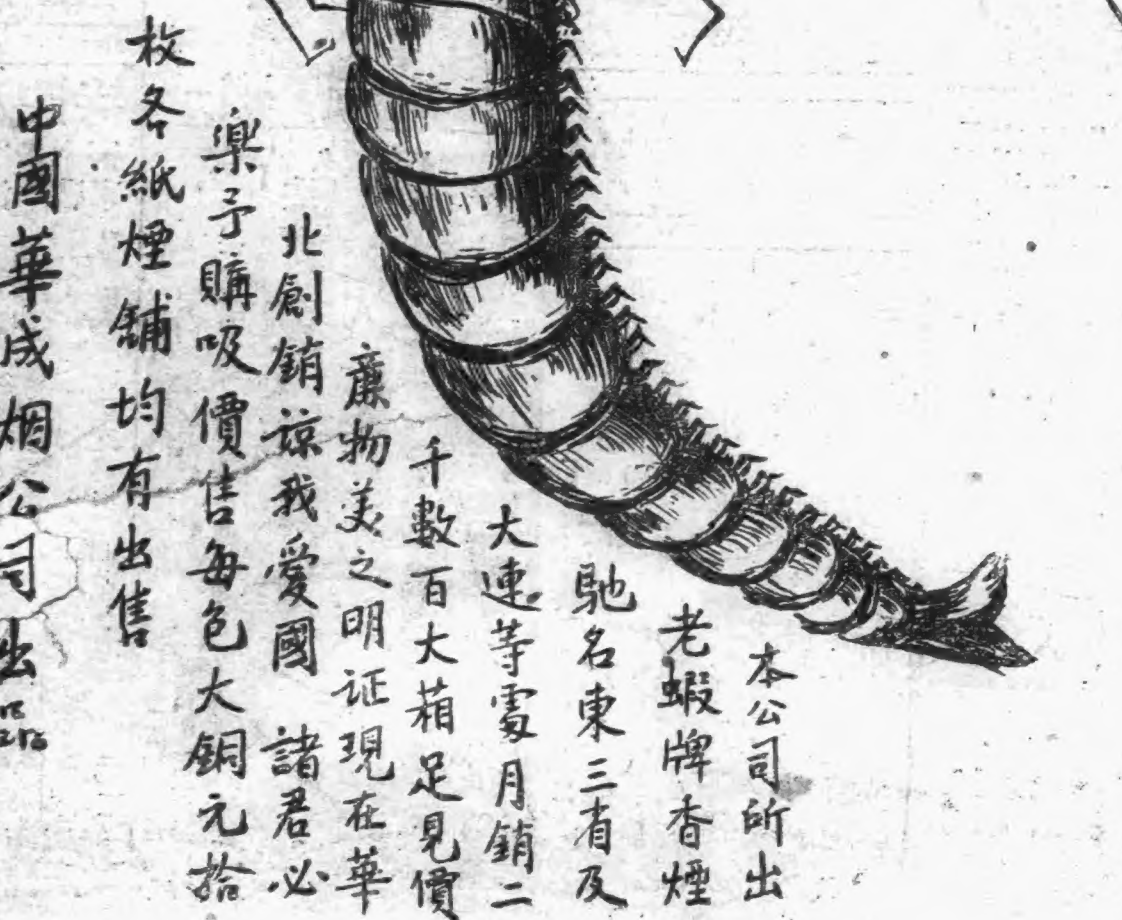 本公司所出
老蝦牌香煙
馳名東三省及
大連等處月銷二
千數百大箱足見價
廉物美之明证現在華
北創銷諒我愛國 諸君必
樂予購吸價售每包大銅元拾
枚各紙煙舖均有出售
中國華成烟公司出品